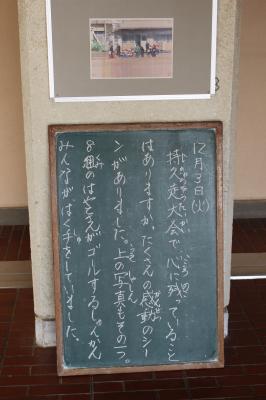 12月3日(火)
持久走大会で、心に残っていること
はありますか。たくさんの感動のシー
ンがありました。上の写真もその一つ。
8組のはやとさんがゴールするしゅんかん
みんながはく手をしていました。